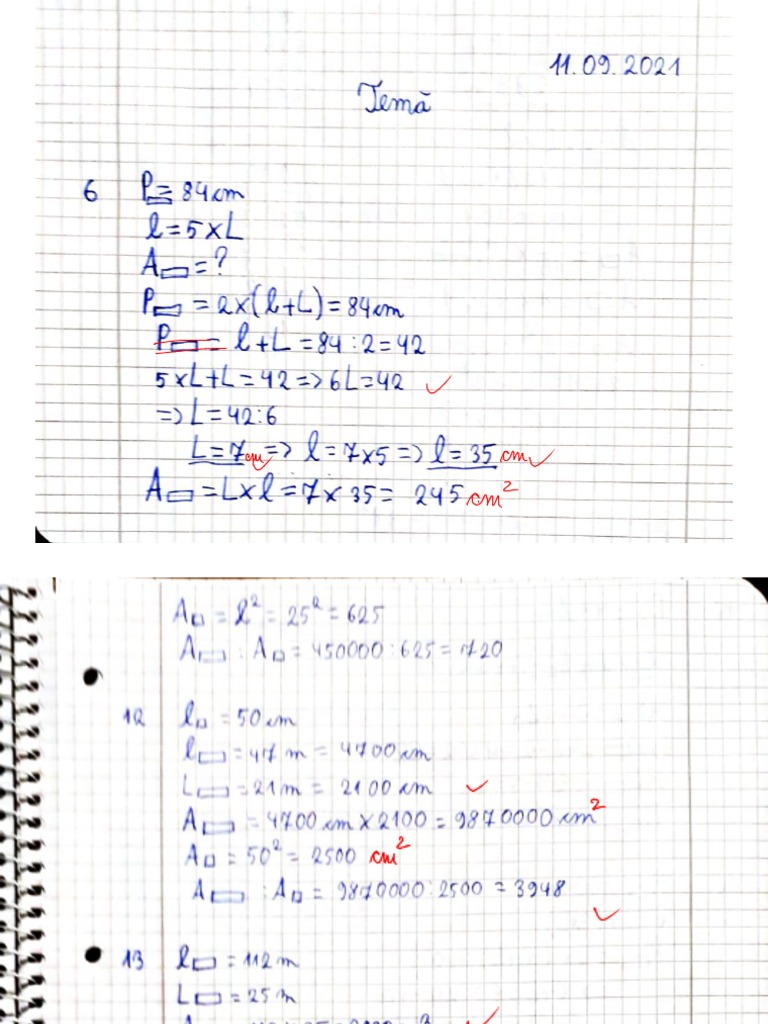 11.09.2021
Temă
6 P▭ = 84 cm
l = 5 x L
A▭ = ?
P▭ = 2x(l+L) = 84 cm
P▭ = l + L = 84 : 2 = 42
5 x L + L = 42 => 6L = 42 ✓
=> L = 42 : 6
L = 7 cm => l = 7 x 5 => l = 35 cm ✓
A▭ = L x l = 7 x 35 = 245 cm²
A▫ = l² = 25² = 625
A▭ : A▫ = 450000 : 625 = 720
12 l▫ = 50 cm
l▭ = 47 m = 4700 cm
L▭ = 21 m = 2100 cm ✓
A▭ = 4700 cm x 2100 = 9870000 cm²
A▫ = 50² = 2500 cm²
A▭ : A▫ = 9870000 : 2500 = 3948
✓
13 l▭ = 112 m
L▭ = 25 m